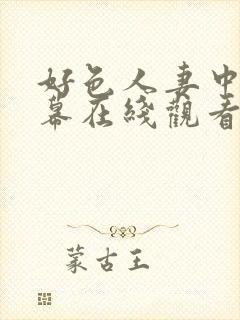 好色人妻中
幕在綫觀看
蒙古王